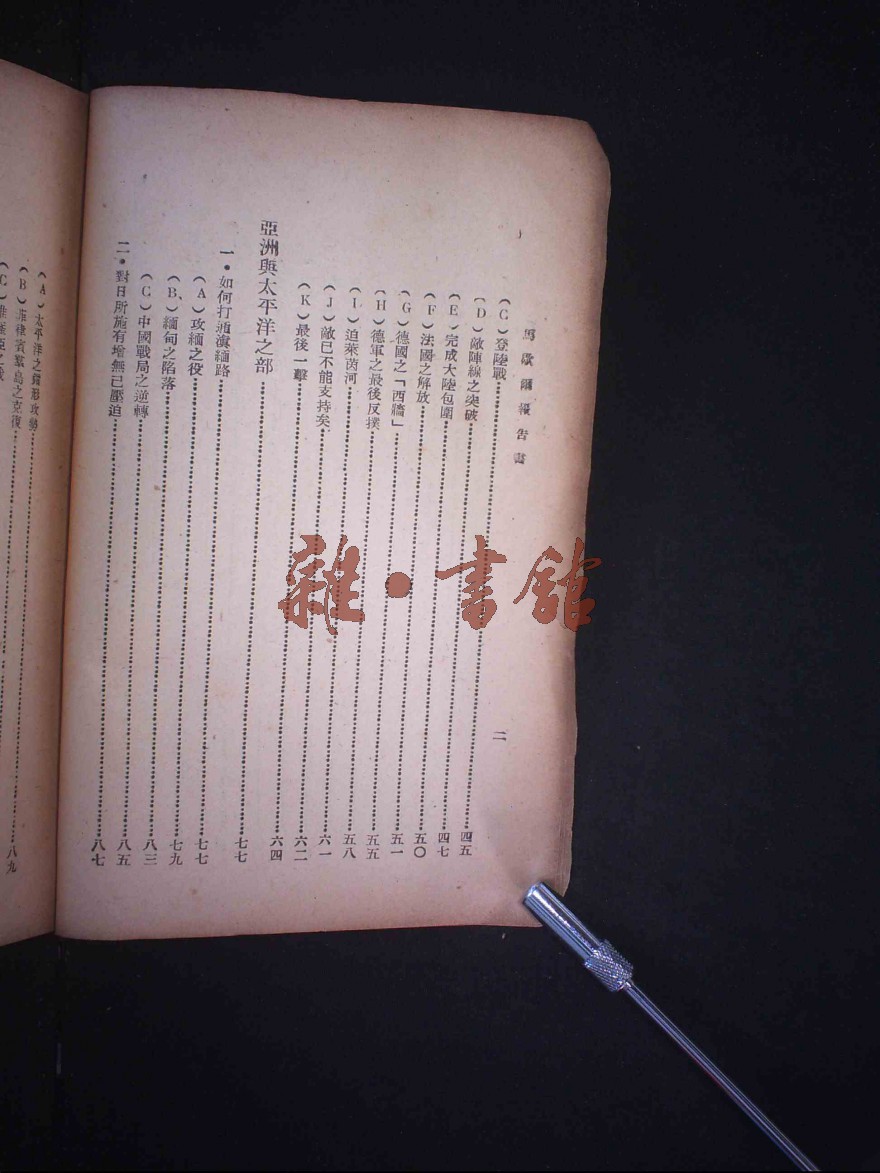 馬歇爾報告書
二
（C）登陸戰……四五
（D）敵陣線之突破……四七
（E）完成大陸包圍……五〇
（F）法國之解放……五一
（G）德國之「西牆」……五五
（H）德軍之最後反撲……五八
（I）迫萊茵河……六一
（J）敵已不能支持矣……六二
（K）最後一擊……六四
亞洲與太平洋之部……七七
一·如何打通滇緬路……七七
（A）攻緬之役……七九
（B）緬甸之陷落……八三
（C）中國戰局之逆轉……八五
二·對日所施有增無已壓迫……八七
（A）太平洋之鉗形攻勢……八九
（B）菲律賓羣島之克復
（C）
雜·書館